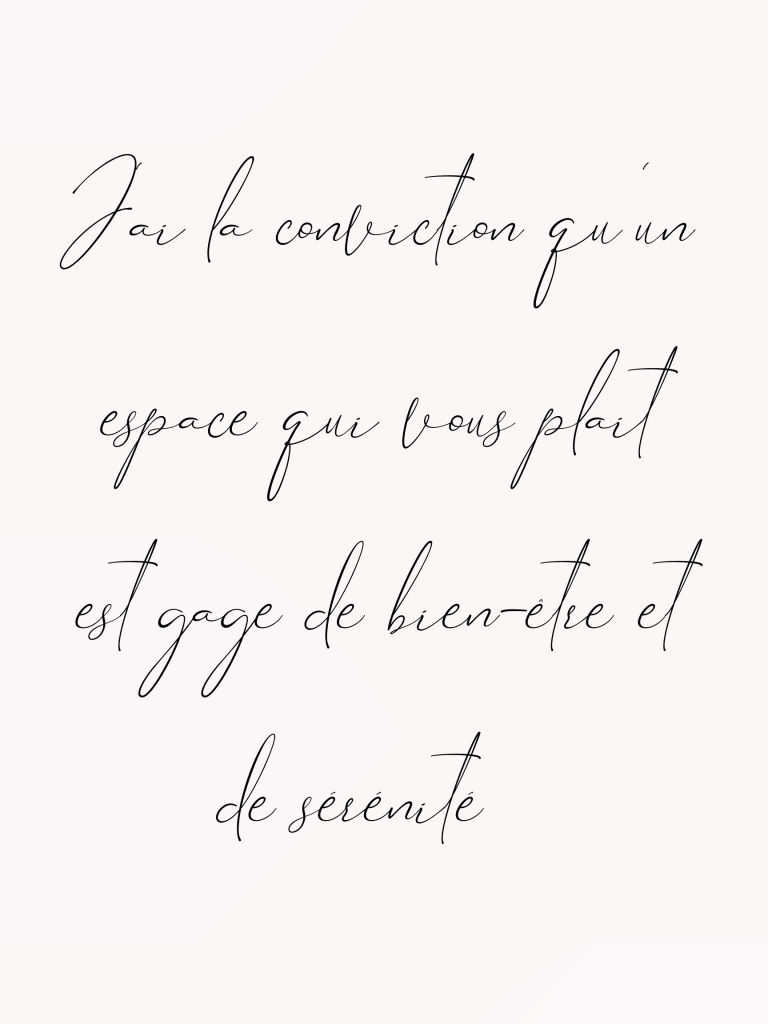 J'ai la conviction qu'un
espace qui vous plait
est gage de bien-être et
de sérénité